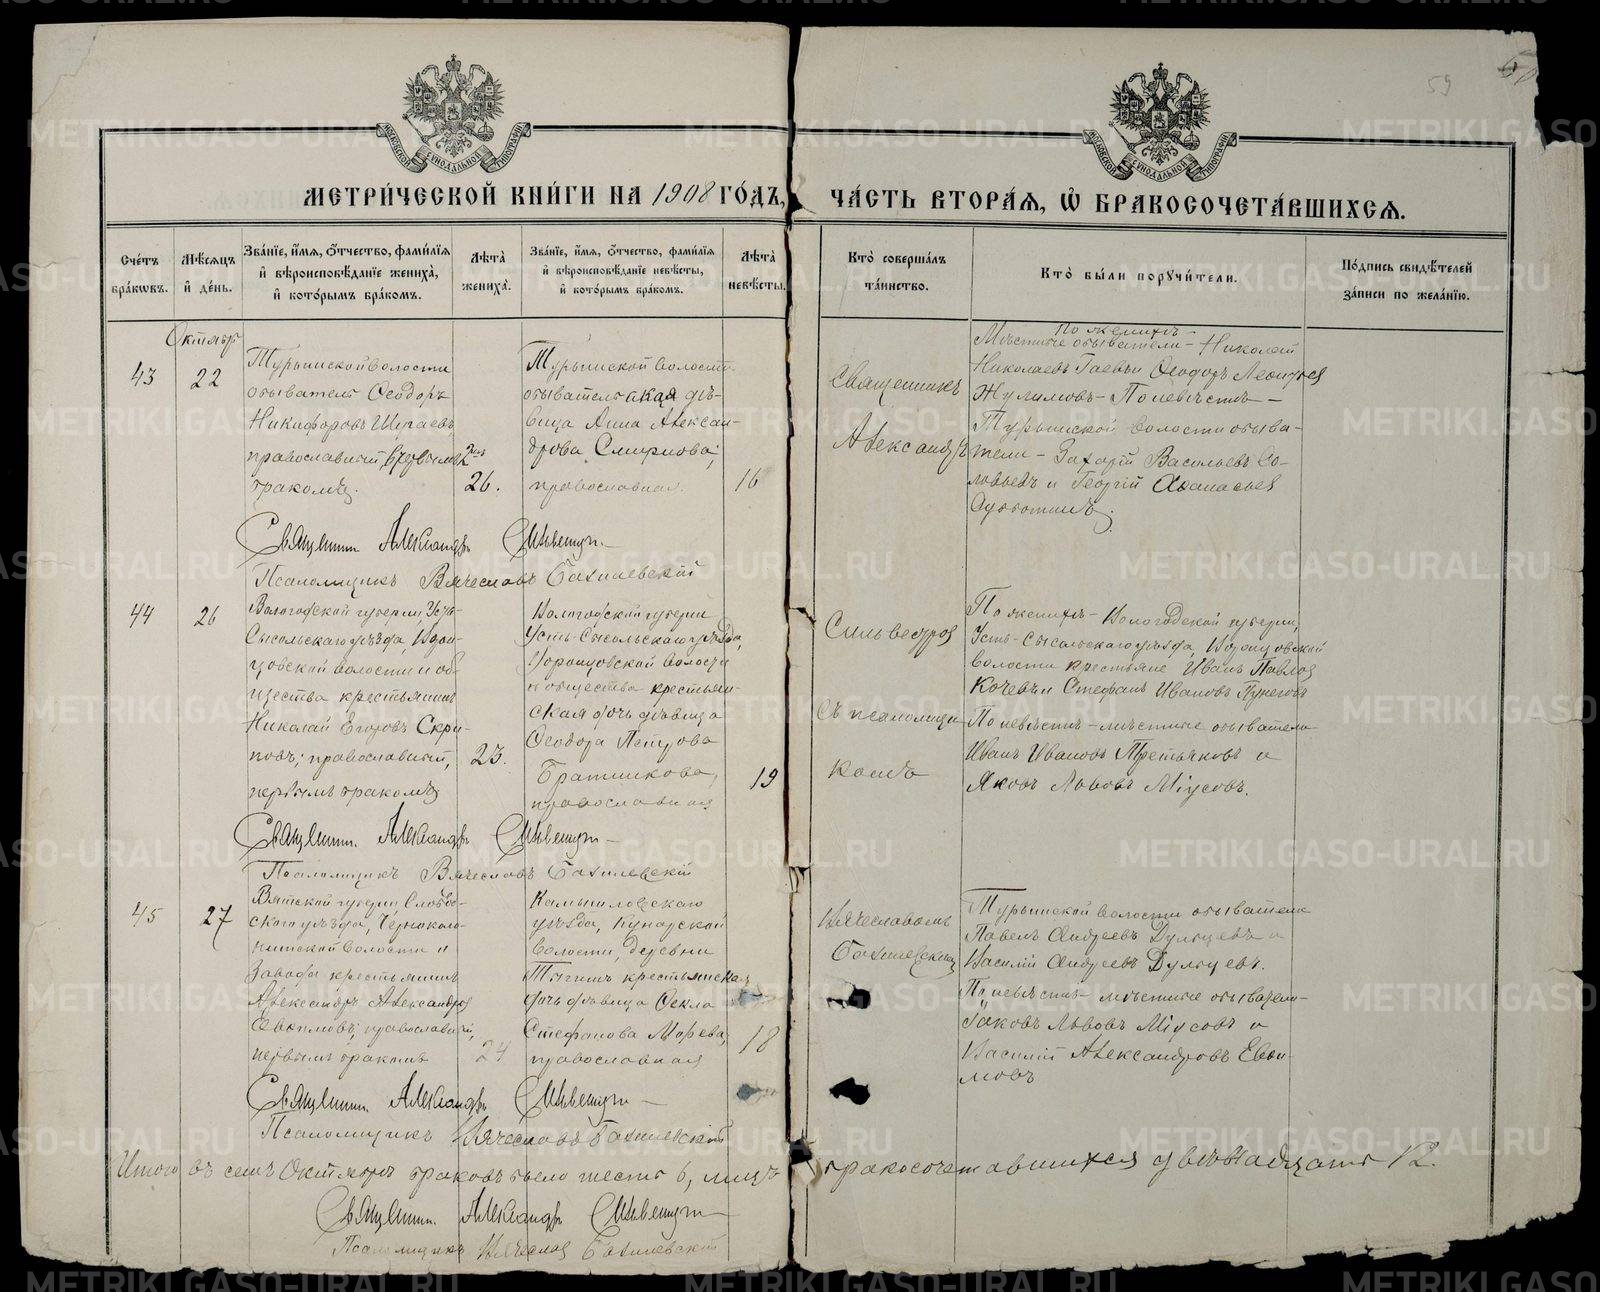 59
МЕТРИ́ЧЕСКОЙ КНИ́ГИ НА 1908 ГО́ДЪ, ЧА́СТЬ ВТОРА́Я, Ѡ҆ БРАКОСОЧЕТА́ВШИХСЯ.
Сче́тъ бра́ковъ.
Мѣ́сяцъ и҆ де́нь.
Зва́нїе, и҆́мя, ѻ҆́тчество, фами́лїя
и҆ вѣроисповѣ́данїе жениха̀,
и҆ кото́рымъ бра́комъ.
Лѣ́та жениха̀.
Зва́нїе, и҆́мя, ѻ҆́тчество, фами́лїя
и҆ вѣроисповѣ́данїе невѣ́сты,
и҆ кото́рымъ бра́комъ.
Лѣ́та невѣ́сты.
Кто̀ соверша́лъ
та́инство.
Кто̀ бы́ли поручи́тели.
По́дпись свидѣ́телей
за́писи по жела́нїю.
Октябрь
43
22
Турьинской волости
обыватель Ѳеодоръ
Никифоровъ
православный,
бракомъ.
26.
Турьинской волости
обывательская дѣ-
вица Анна Алексан-
дрова Смирнова,
православная.
16
Священникъ
Александръ
По женихѣ –
Мѣстные обыватели – Николай
Николаевъ Гаевъ и Ѳеодоръ Леонтьев
Жулимовъ – По невѣстѣ –
Турьинской волости обыва-
тели – Захарій Васильевъ Со-
ловьевъ и Георгій Аѳанасьев
Священникъ Александръ Сильвестровъ
Псаломщикъ Вячеславъ
44
26
Вологодской губерніи, Усть-
Сысольскаго уѣзда,
волости и об-
щества крестьянинъ
Николай Егоровъ Скри-
повъ, православный,
первымъ бракомъ
23.
Вологодской губерніи
Усть-Сысольскаго уѣзда,
волости
и общества крестьян-
ская дочь дѣвица
Ѳеодора Петрова
Братчикова,
православная
19
Сильвестров
съ псаломщи
комъ
По женихѣ – Вологодской губерніи,
Усть-Сысольскаго уѣзда,
волости крестьяне Иванъ Павлов
Кочевъ и Стефанъ Ивановъ
По невѣстѣ – мѣстные обыватели
Иванъ Ивановъ Третьяковъ и
Яковъ Львовъ Міусовъ.
Священникъ Александръ Сильвестровъ
Псаломщикъ Вячеславъ
45
27
Вятской губерніи Слобод-
скаго уѣзда, Чернохолу-
ницкой волости и
Завода крестьянинъ
Александръ Александров
Евѳимовъ, православный,
первымъ бракомъ
24
Камышловскаго
уѣзда, Кунарской
волости, деревни
крестьянская
дочь дѣвица Ѳекла
Стефанова Морева,
православная
18
Вячеславомъ
Турьинской волости обыватели
Павелъ Андреевъ Дульцевъ и
Василій Андреевъ Дульцевъ.
По невѣстѣ – мѣстные обыватели –
Іаковъ Львовъ Міусовъ и
Василій Александровъ Евѳи-
мовъ
Священникъ Александръ Сильвестровъ
Псаломщикъ Вячеславъ
Итого въ семъ Октябрѣ браковъ было шесть 6, лицъ бракосочетавшихся двѣнадцать 12.
Священникъ Александръ Сильвестровъ
Псаломщикъ Вячеслав
METRIKI.GASO-URAL.RU